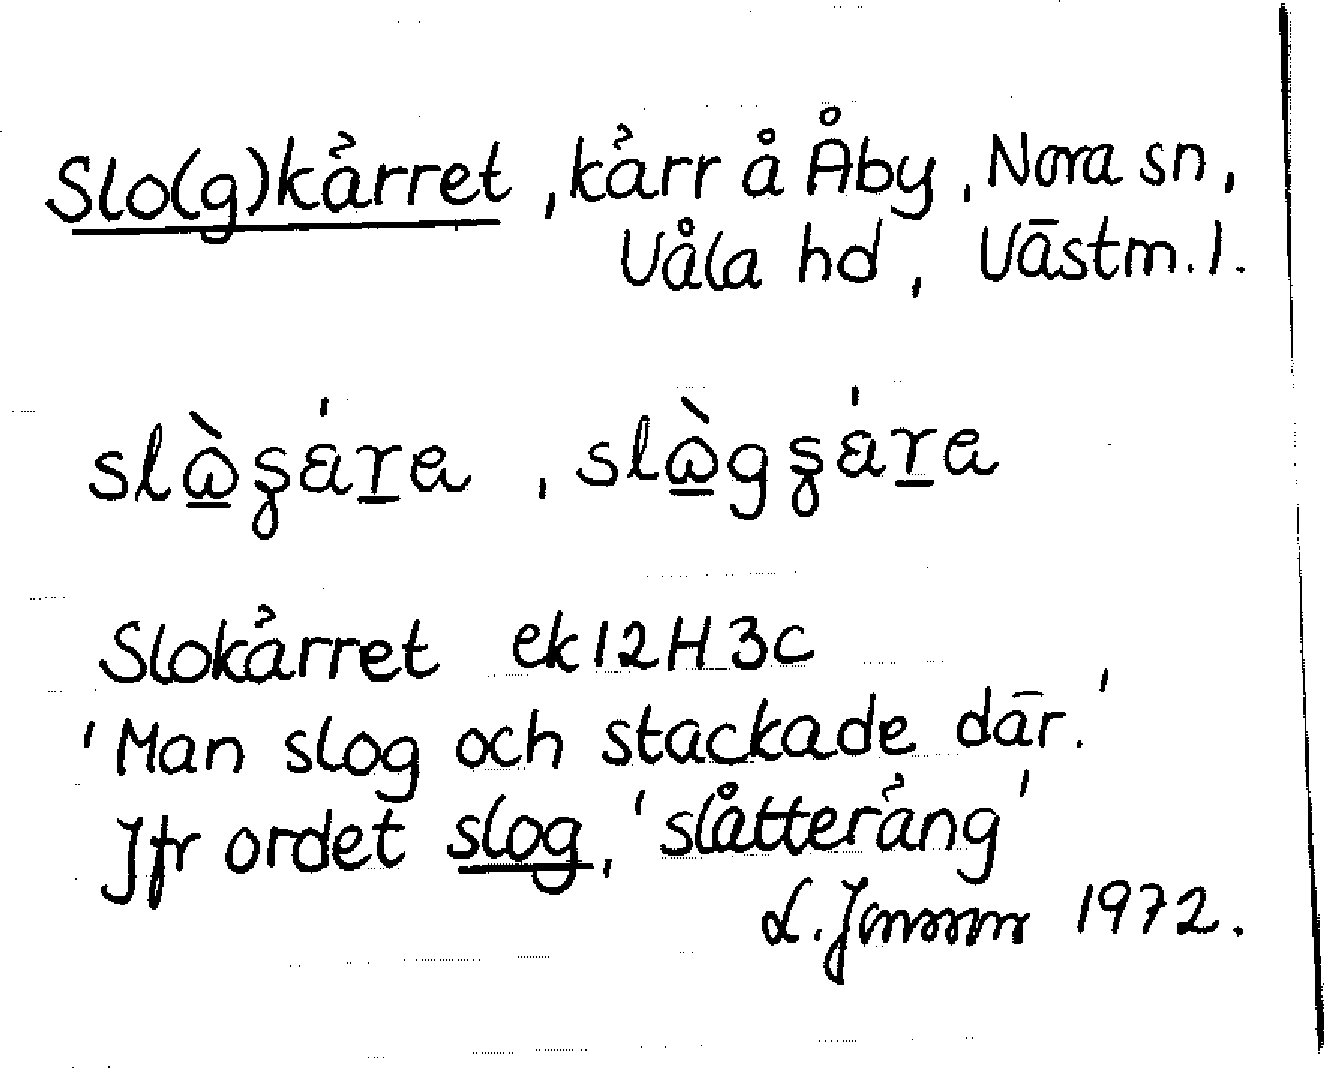 Slo(g)kärret, kärr å Åby, Nora sn,
Våla hd, Västm. l.
Slokärret ek 12H 3c
'Man slog och stackade där.'
Jfr ordet slog, 'slåtteräng'
L. 1972.